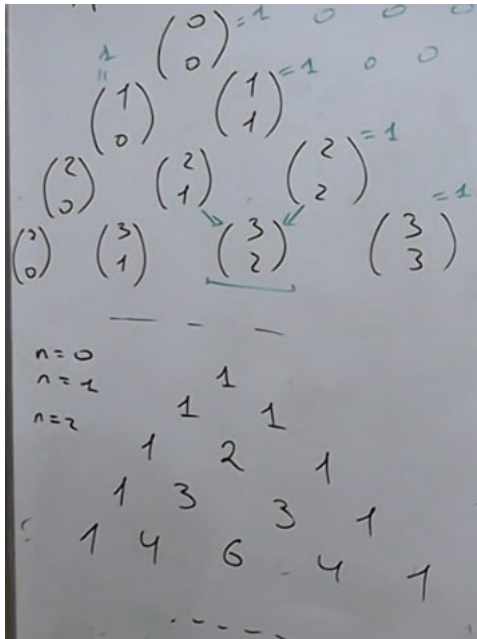 (0 0) = 1 0 0 0
1 = (1 0) (1 1) = 1 0 0
(2 0) (2 1) (2 2) = 1
(3 0) (3 1) (3 2) (3 3) = 1
n=0 1
n=1 1 1
n=2 1 2 1
1 3 3 1
1 4 6 4 1